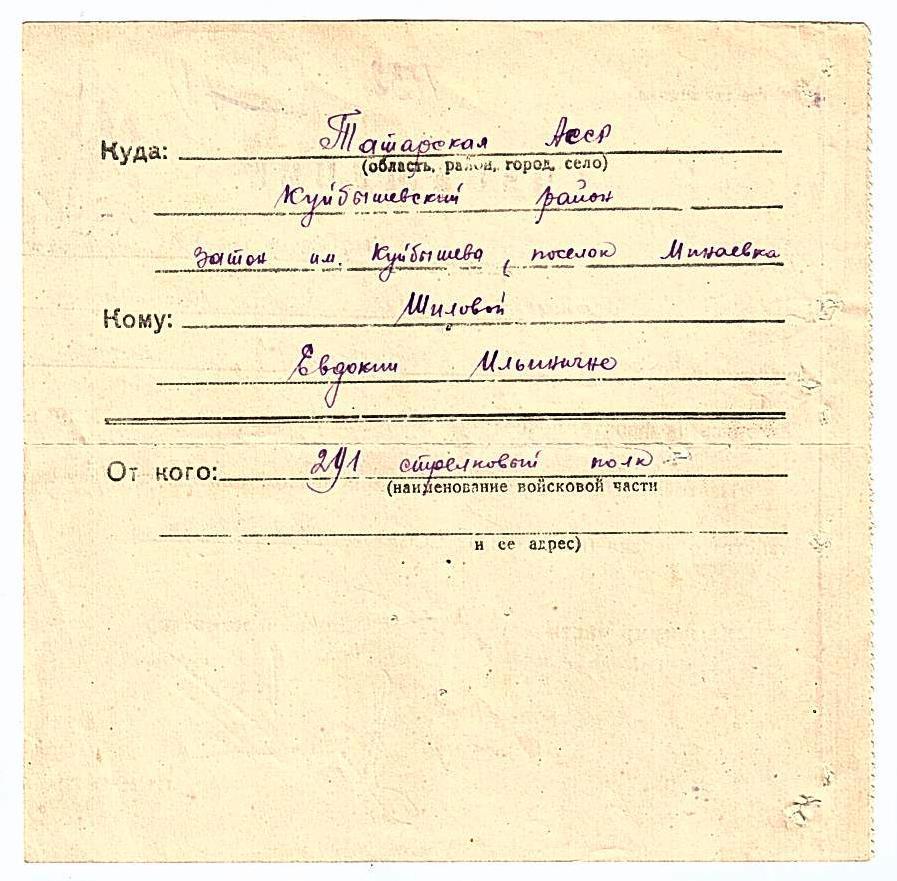 Куда: Татарская АССР
(область, район, город, село)
Куйбышевский район
Затон им. Куйбышева, поселок Минаевка
Кому: Шиловой
Евдокии Ильиничне
От кого: 291 стрелковый полк
(наименование войсковой части
и ее адрес)